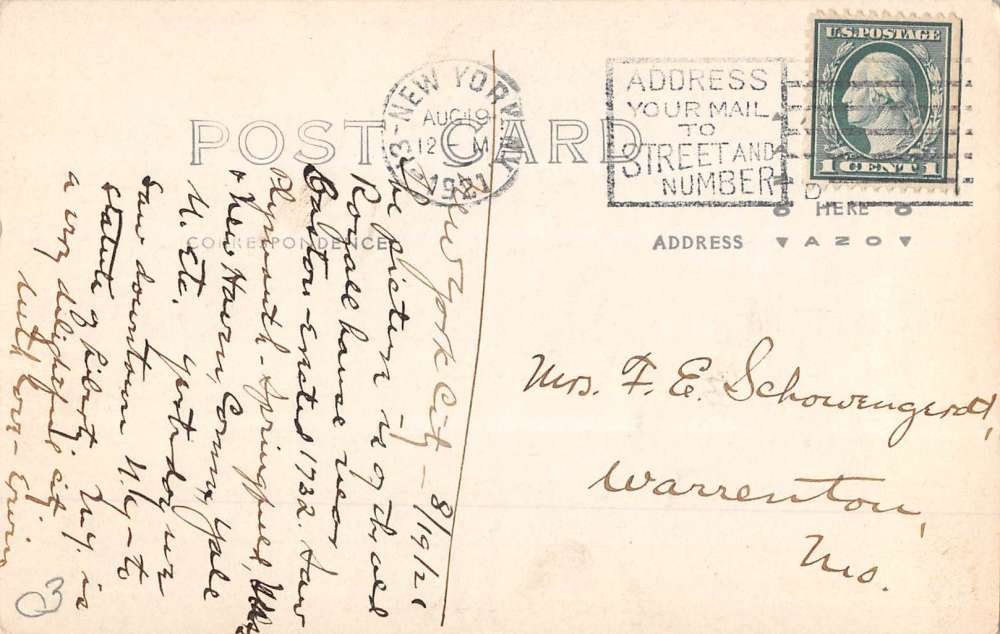 POST CARD
CORRESPONDENCE
NEW YORK, N.Y.
AUG 19
12 - M
1921
ADDRESS
YOUR MAIL
TO
STREET AND
NUMBER
U.S. POSTAGE
1 CENT 1
HERE
ADDRESS
AZO
New York City - 8/19/21
The picture is of the old
Royall house near
Boston - erected 1732. Saw
Plymouth - Springfield,
& New Haven, Conn, Yale
U. Etc. yesterday we
saw downtown N.Y. - to
statute of liberty N.Y. is
a very delightful city
with love - Erwin
Mrs. F. E. Schowengerdt,
Warrenton,
Mo.